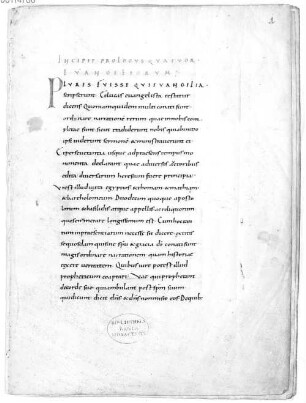 INCIPIT PROLOGUS QUATUOR
EUANGELIORUM
PLURES FUISSE QUI EUANGELIA
scripserunt & lucas euangelista testatur
dicens Quoniam quidem multi conati sunt
ordinare narrationem rerum quae in nobis com
pletae sunt sicut tradiderunt nobis qui ab initio
ipsi uiderunt sermonem & ministrauerunt ei
& perseuerantia usque ad praesens tempus mo
numenta declarant quae a diuersis auctoribus
edita diuersarum heresum fuere principia
Ut est illud iuxta egyptios & thoman & mathiam
& bartholomeum Duodecim quoque aposto
lorum & basilidis atque appellis ac reliquorum
quos enumerare longissimum est Cum hoc tan
tum in praesentiarum necesse sit dicere extitis
se quosdam qui sine spu & gratia di conati sunt
magis ordinare narrationem quam historiae
texere ueritatem Quibus iure potest illud
propheticum coaptari Uae qui prophetant
de corde suo qui ambulant post spm suum
qui dicunt dicit dns & dns non misit eos De quib
BIBLIOTHECA
REGIA
MONACENSIS